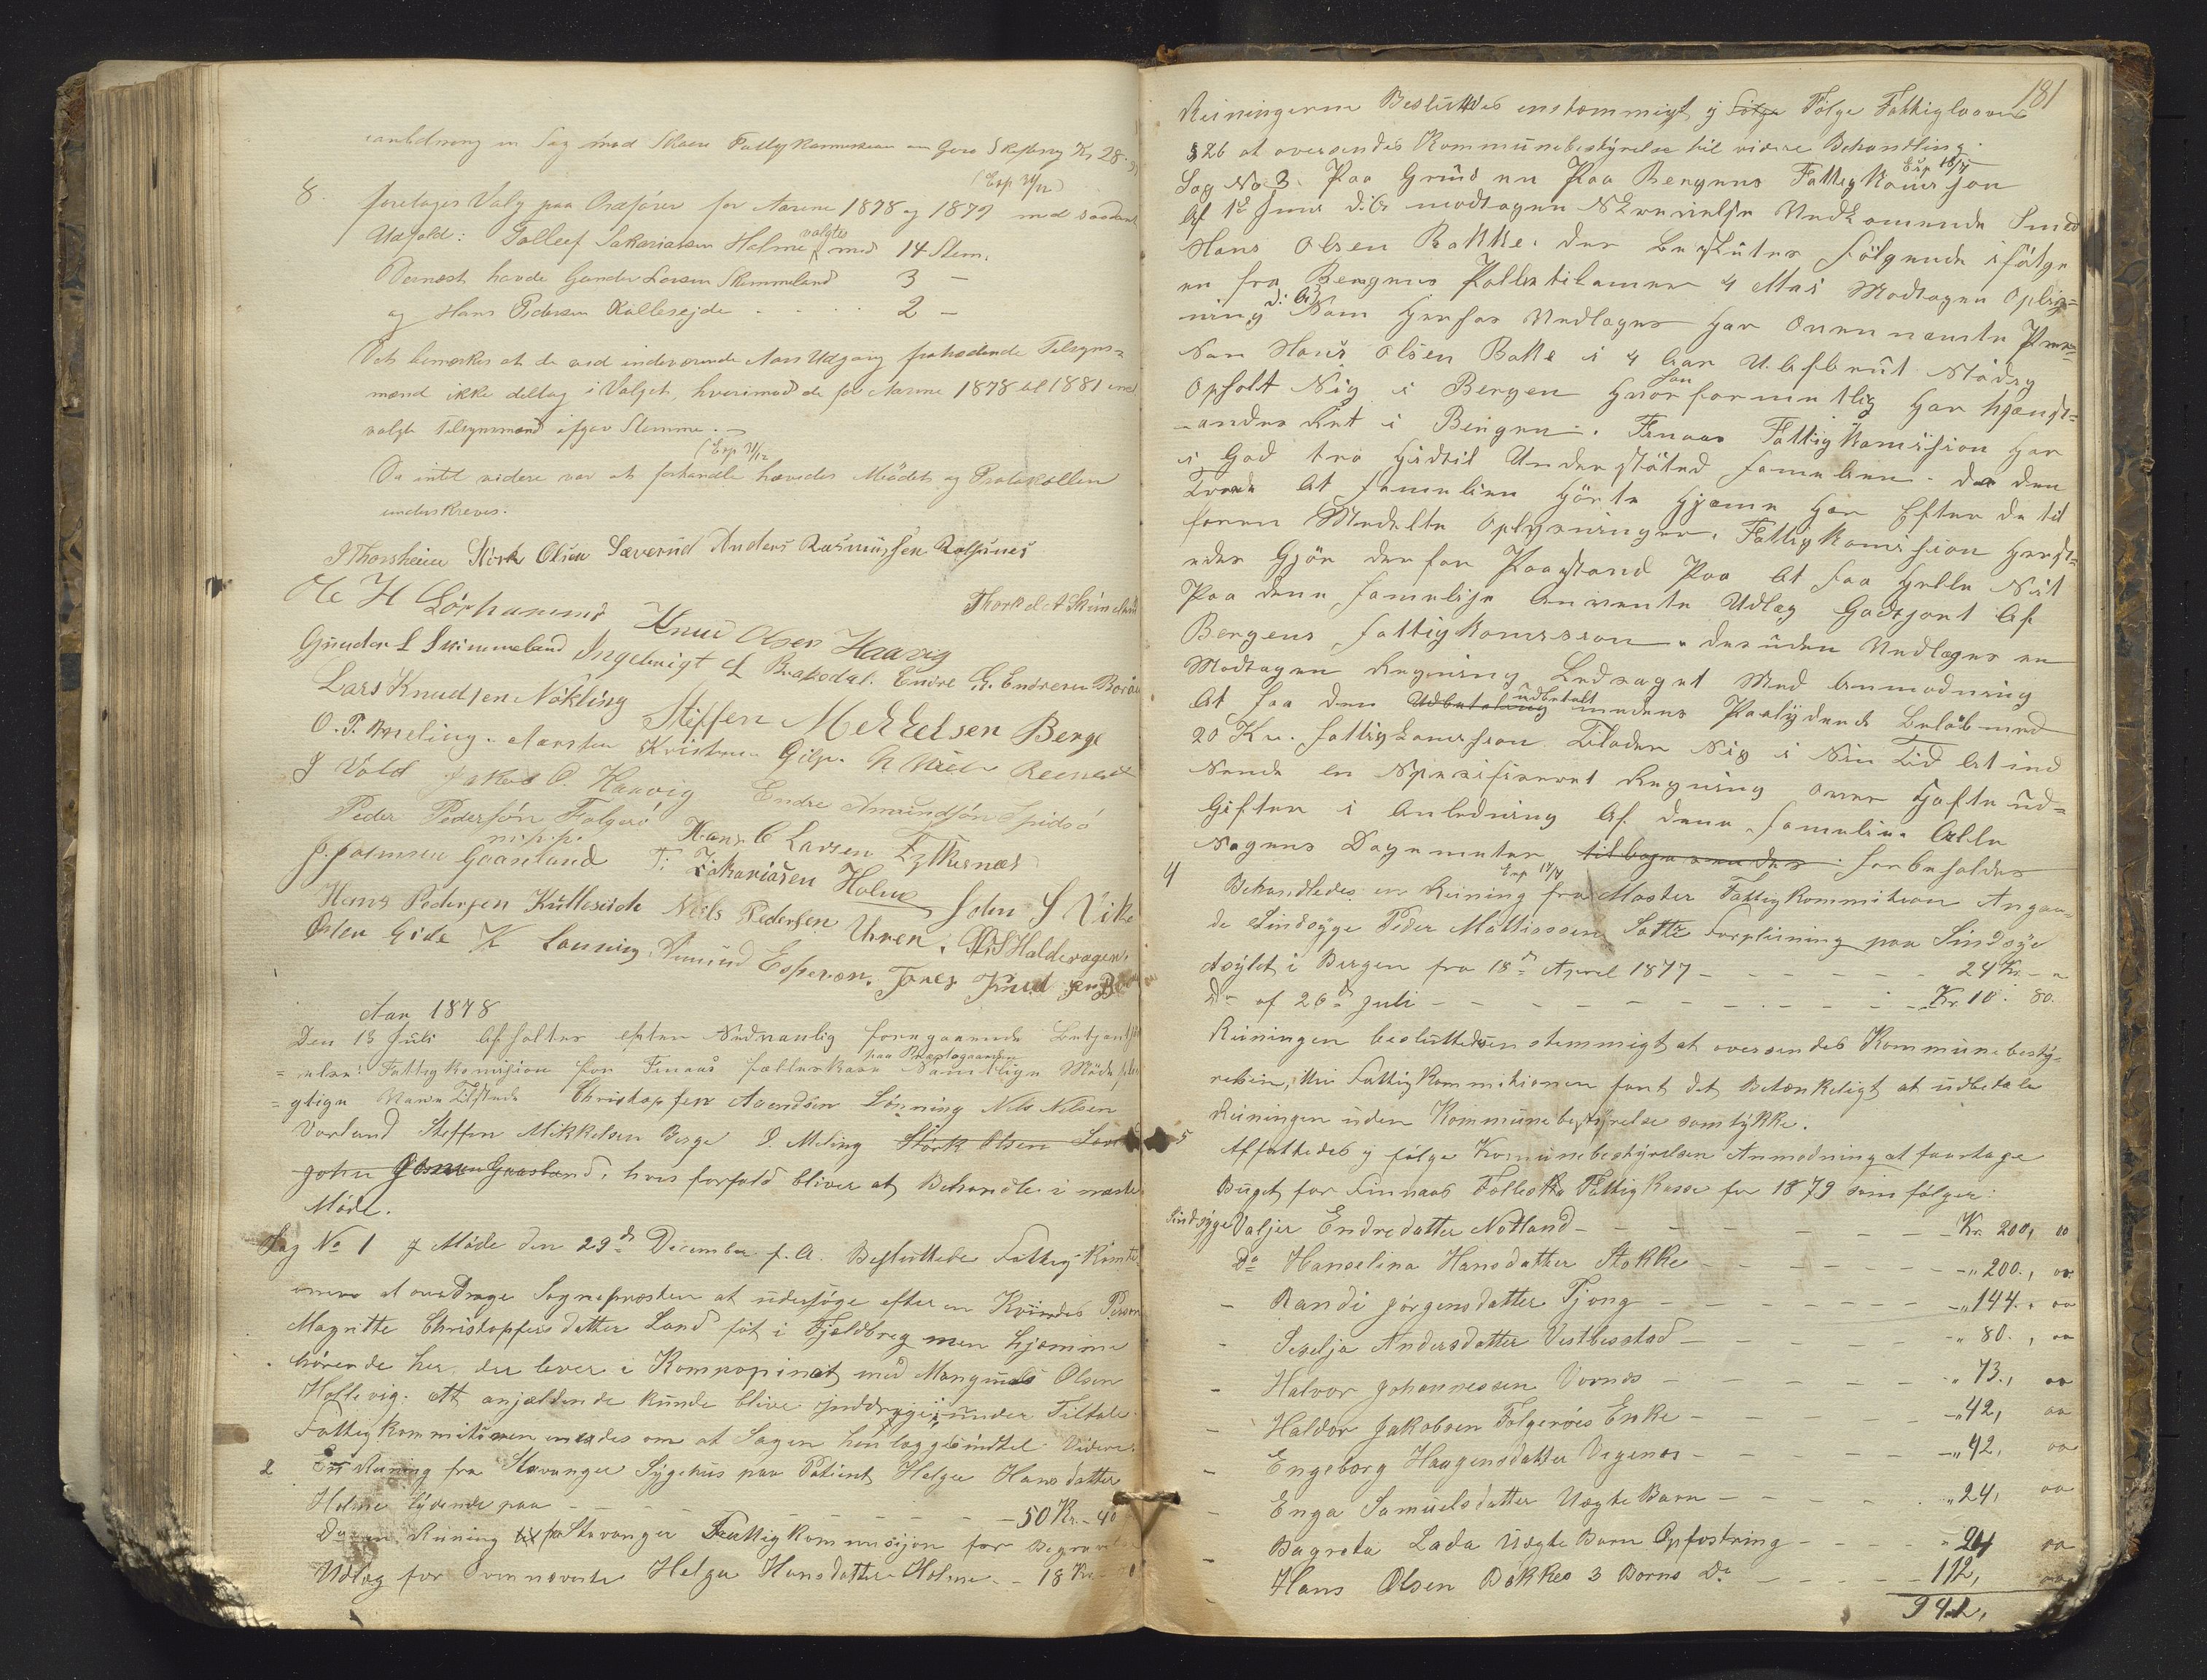 anledning en Sag mod Skaare Fattigkommission om Gevo Skjelberg Kr 28.
(Exp 31/12)
8. foretages Valg paa Ordfører for Aarene 1878 og 1879 med saadant
Udfald: Tollef Sakariassen Holme valgtes med 14 Stem.
Dernæst havde Gunder Larsen Skimmeland 3 —
og Hans Pedersen Kallesejde 2 —
Det bemærkes at de ved indeværende Aars Udgang fratrædende Tilsyns=
mænd ikke deltog i Valget, hvorimod de for Aarene 1878 til 1881 ind
valgte Tilsynsmænd afgav Stemme.
(Exp 31/12
Da intet videre var at forhandle hævedes Mødet og Protokollen
underskreves.
J Thorsheim Størk Olsen Sæverud Anders Rasmussen Rolfsnes
O H Lørhammer Thorkel A Skimeland
Knud Olsen Haavig
Gunder L Skimmeland Ingebrigt L Brakedal. Endre G. Endresen Borøen
Lars Knudsen Nökling Steffen Mekkelsen Berge
O. T. Meling. Aarsten Kristensen Gilje.
J Vold Jakob O. Haavig Endre Amundsön Spidsö
Peder Pedersön Folgerö
m. p. p. Hans C Larsen Lykkesnæs
J. Johnsen Gaasland T: Zakariasen Holme John S Vike
Hans Pedersen Kulleseide Nels Pedersen Uhren. O S Haldevagen.
Osten Eide K Lønning Amund Espesøn. Tones Knud
Aar 1878
Den 13 Juli Afholtes efter Sedvanlig forregaaende Betjent
=else: Fattigkomision for Finaas fælleskasse paa Bræstegaarden Samtlige Möde
=gtige Vare Tilstæde Christopfer Avendsen Lønning Nels Nelsen
Vorland Steffen Mikkelsen Berge O Meling Störk Olsen Sæverud
John Johnsen Gaasland, hvis forfald bliver at Behandle i næste
Møde.
Sag No 1 I Møde den 29de December f. A. Besluttede Fattig Komite=
onen at anDrage Sognepresten at udersøge efter en Kvindes Person
Magritte Christopfersdatter Land føt i Fjeldbreg men hjemme
hörende her, der lever i Kompopinat med Mangnus Olsen
Hollevig. At anjældende kunde blive inddrage under Tiltale
Fattigkommitionen enedes om at Sagen henlægges indtel Videre.
2 En Reining fra Stavanger Sygehus paa Patient Helge Hansdatter
Holme lydende paa — — — — — 50 Kr. — 40
Do en Reining fra Stavanger Fattigkommisjon for Begravelse
Udlæg for Ovennevnte Helge Hansdatter Holme — 18 Kr
181
Reiningerne Besluttedes enstemmigt i følge Følge Fattigloovens
§ 26 at oversendes Kommunebestyrelse til videre Behandling.
Exp 18/7
Sag No 3. Paa Grund en Paa Bergens Fattig Komissjon
Af 1de Juni d: A modtagen Skrevelse Vedkomende Smed
Hans Olsen Bakke. der Besluttes Følgende ifølge
en fra Bergens Pollitikamer 4 Mai Modtagen Oplys=
ning d: A Som Herhos Vedlæges har Ovennæmte Per=
son Hans Olsen Bakke i 4 Aar U. Afbrut Stadig
Opholt Sig i Bergen Hvor han formentlig har hjemst=
=anders Ret i Bergen. Finaas Fattig Komission har
i God tro Hidtil Understøted Famelien. da den
Troede At Famelien Hørte Hjeme Her Efter de til
foren Medelte Oplysninger. Fattigkomission Herst=
edes Gjør derfor Paastand Paa At Faa Hele Sit
Paa dene Famelije Anvente Udlæg Godtjort Af
Bergens Fattigkomission. desuden Vedlæges en
Modtagen Regning Ledsaget Med Anmodning
At faa den Udbetaling udbetalt medens Paalydende Beløb med
20 Kr. Fattigkomission Tilader Sig i Sin Tid At ind
Sende en Spesifiseret Regning over Hafte ud=
Gifter i Anledning Af dene Famelie. Alle
Sagens Dogumenter tilbagesendes. Forbeholdes
Exp 18/7
4 Behandledes en Reining fra Moster Fattigkommitioen Angaan=
de Sindsyge Peder Mattiassen Sættre Forpleining paa Sindsyge
Asylet i Bergen fra 18de April 1877 — — — 24 Kr. — "
Do af 26de Juli — — — — — Kr. 10: 80.
Reiningen besluttedes enstemmigt at oversendes Kommunebesty=
relsen, thi Fattigkommitionen fant det Betænkeligt at udbetale
Reiningen uden Kommunebestyrelse samtykke.
5 Affattedes i følge Kommunebestyrelsen Anmodning at foretage
Buget for Finnaas Folleska Fattig Kasse for 1879 som følger:
Sindsyge Valjer Endredatter Notland — — — Kr. 200, 00
Do Hanselina Hansdatter Stokke — — — " 200., 00
— Randi Jørgensdatter Tjong — — — " 144., 00
— Seselja Andersdatter Vestbøstad — — — " 80., 00
— Halvor Johannessen Vornes — — — " 73., 00
— Haldor Jakobsen Folgerøes Enke — — — " 42, 00
— Engeborg Haagensdatter Vagenes — — — " 42, 00
— Enga Samuelsdatter Uægte Barn — — — " 24, 00
— Bagreta Lada Uægte Barn Opfostring — — — " 24 00
— Hans Olsen Bakkes 3 Børns Do — — — 112, 00
942,